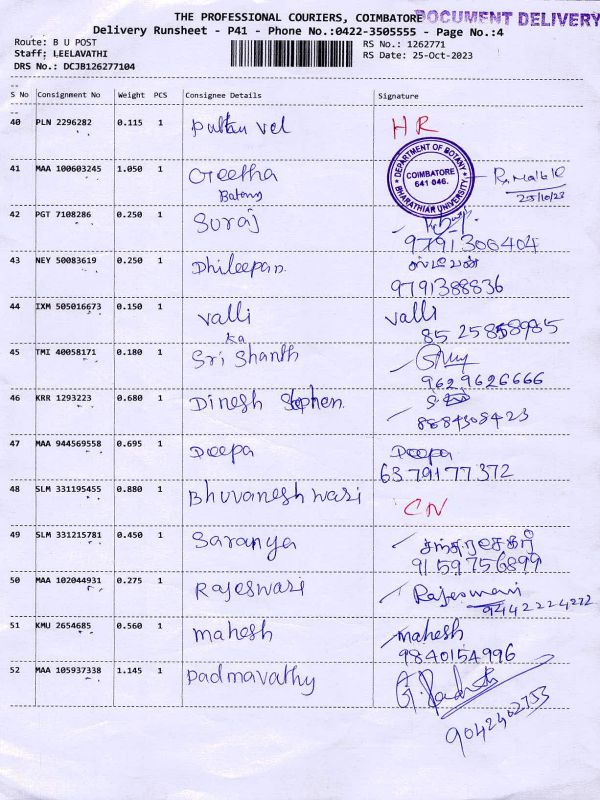 THE PROFESSIONAL COURIERS, COIMBATORE
DOCUMENT DELIVERY
Delivery Runsheet - P41 - Phone No.:0422-3505555 - Page No.:4
Route: B U POST
RS No.: 1262771
Staff: LEELAVATHI
RS Date: 25-Oct-2023
DRS No.: DCJB126277104
S No Consignment No Weight PCS Consignee Details Signature
40 PLN 2296282 0.115 1 vel HR
41 MAA 100603245 1.050 1 Geetha
Botany
DEPARTMENT OF BOTANY
COIMBATORE
641 046.
BHARATHIAR UNIVERSITY
25/10/23
42 PGT 7108286 0.250 1 Suraj
9791306404
43 NEY 50083619 0.250 1 Dhileepan
9791388836
44 IXM 505016673 0.150 1 Valli Valli
85 25858985
45 TMI 40058171 0.180 1 Sri Shanth
ka
9629626666
46 KRR 1293223 0.680 1 Dinesh Stephen
8884308423
47 MAA 944569558 0.695 1 Deepa Deepa
6379177372
48 SLM 331195455 0.880 1 Bhuvaneshwari CN
49 SLM 331215781 0.450 1 Saranya சந்திரசேகர்
9159756899
50 MAA 102044931 0.275 1 Rajeswari Rajeswari
9442224272
51 KMU 2654685 0.560 1 mahesh mahesh
9840154996
52 MAA 105937338 1.145 1 Padmavathy
9042402753